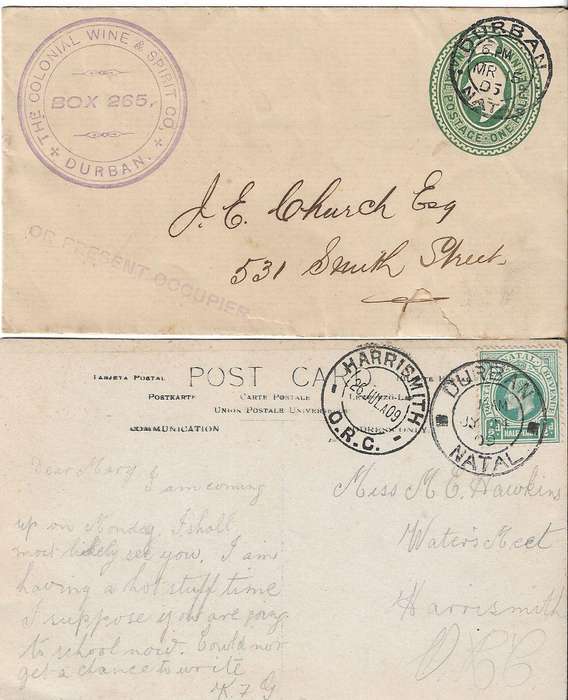 THE COLONIAL WINE & SPIRIT CO.
BOX 265,
DURBAN.
DURBAN
6 PM
MR
05
NATAL
POSTAGE · ONE
J. E. Church Esq
531 Smith Street.
OR PRESENT OCCUPIER
TARJETA POSTAL
POST CAR
POSTKARTE
CARTE POSTALE
UNION POSTALE UNIVERSELLE
COMMUNICATION
ADDRESS ONLY
HARRISMITH
26 JUL 09
O.R.C.
DURBAN
09
NATAL
NATAL
POSTAGE
HALF
Dear Mary
I am coming
up on Monday, I shall
most likely see you. I am
having a hot stuff time
I suppose you are going
to school now. Could not
get a chance to write
Miss M. E. Hawkins
Water's Meet
Harrismith